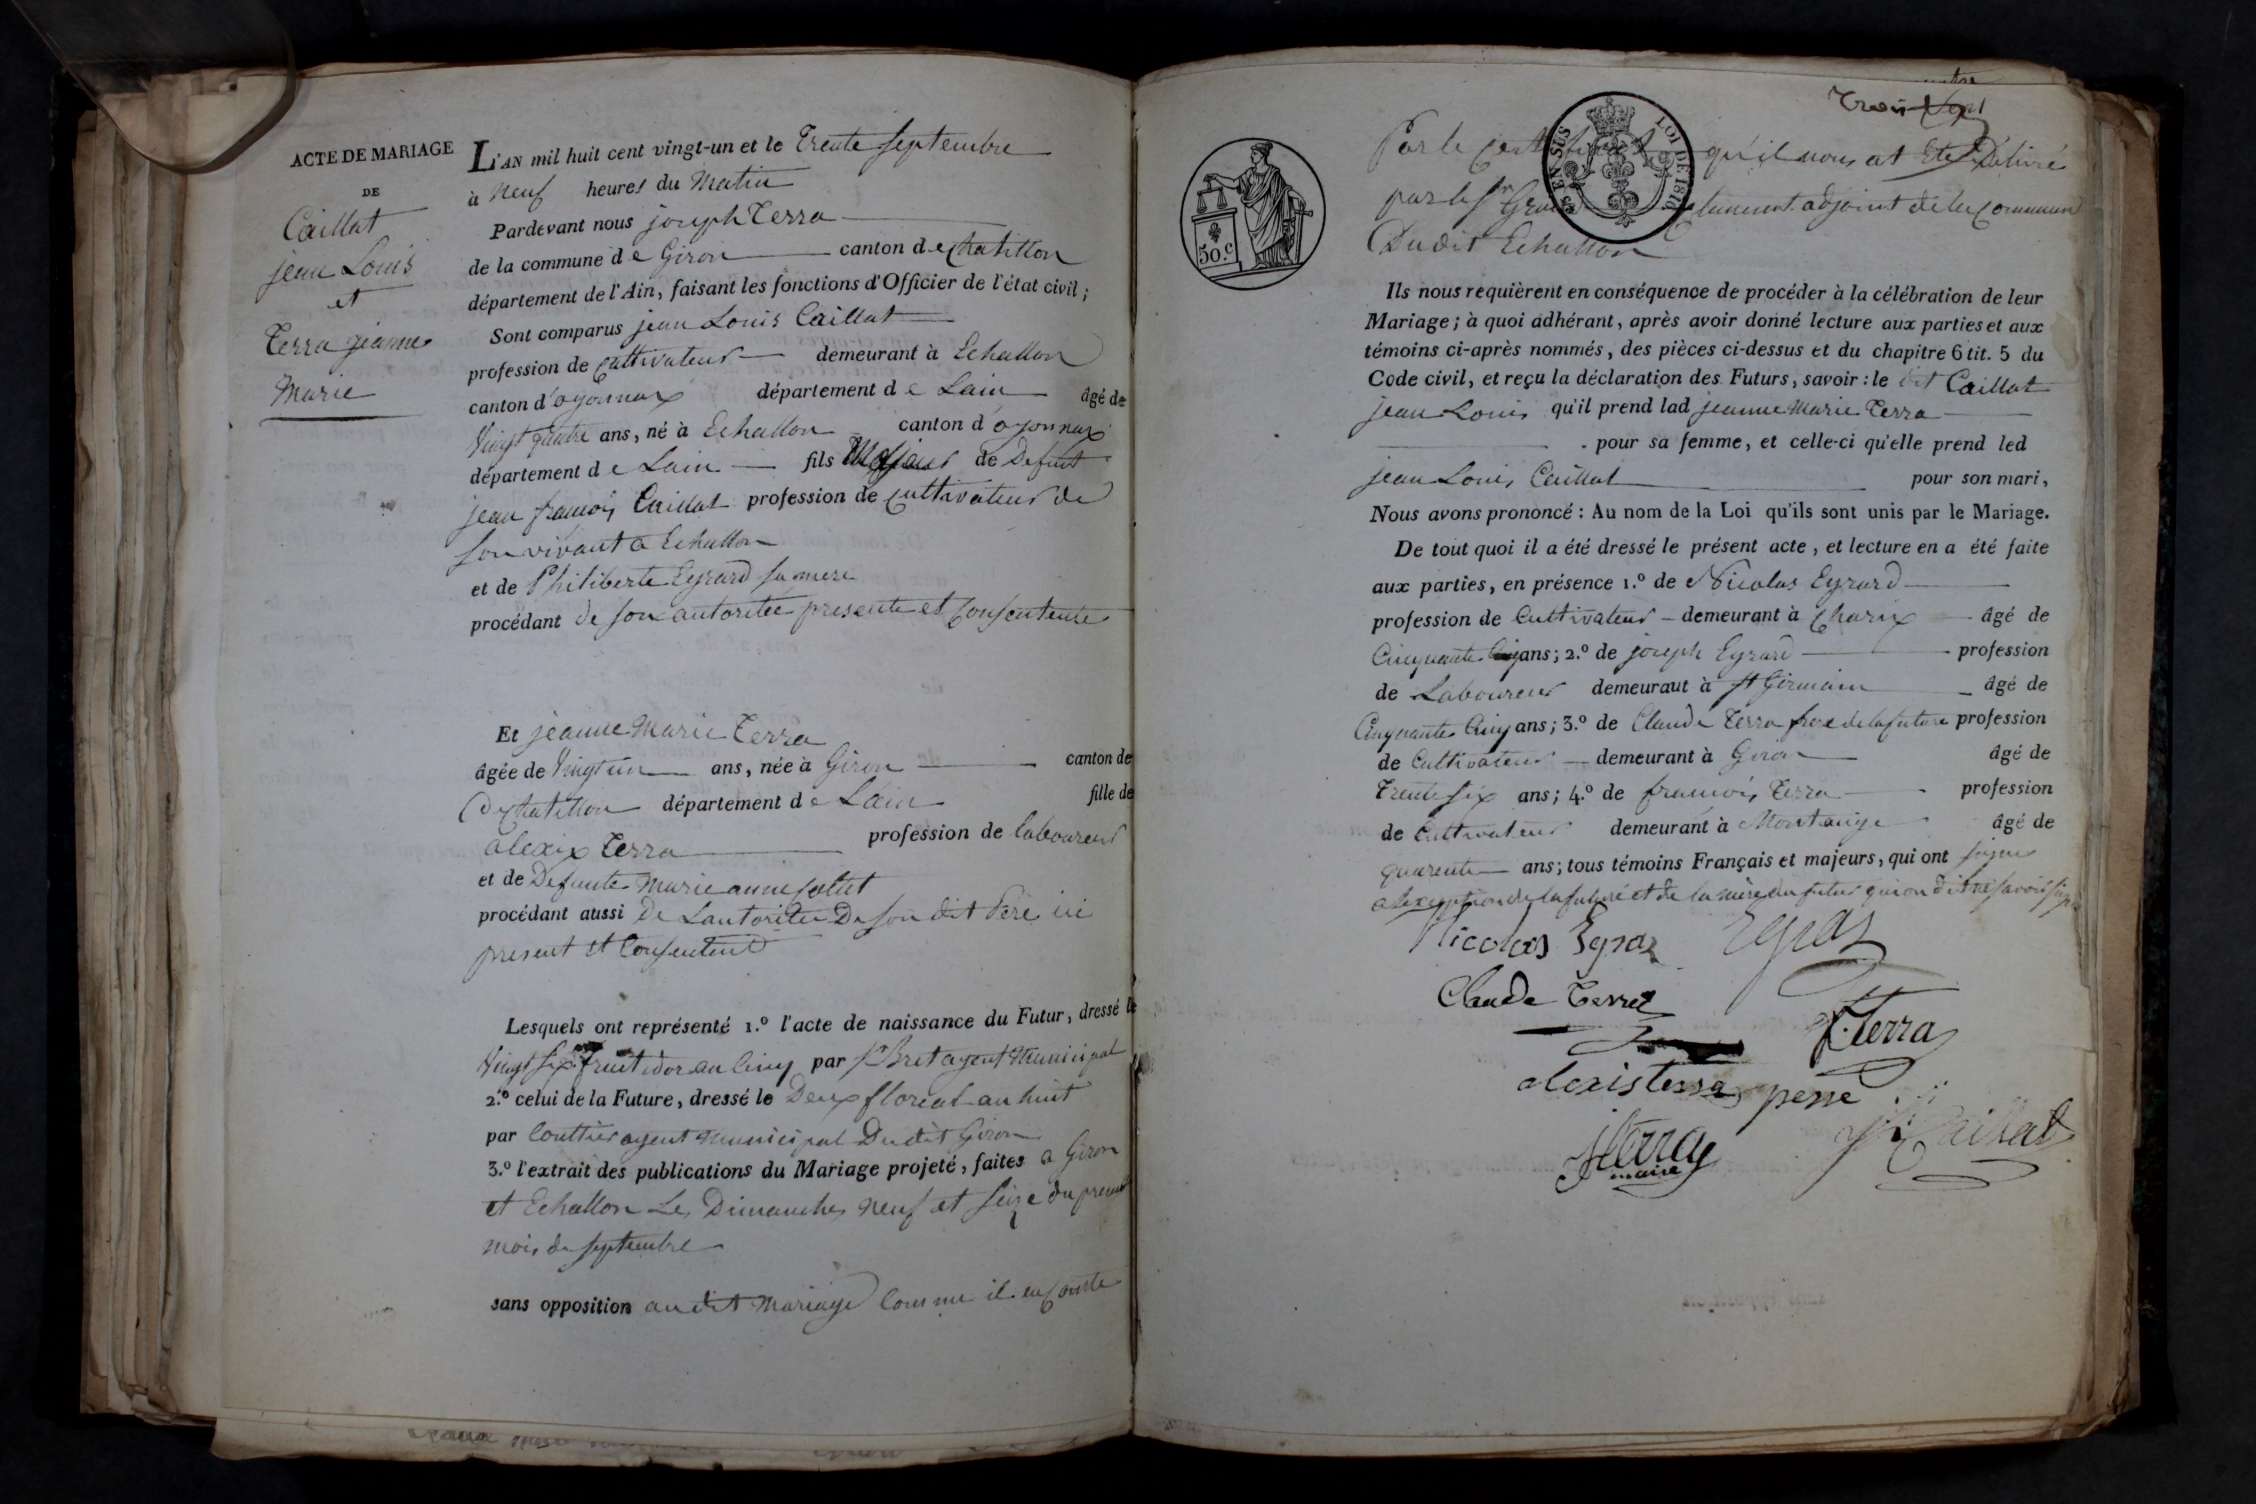 ACTE DE MARIAGE
DE
Caillat
jean Louis
et
Terra jeanne
Marie
L'AN mil huit cent vingt-un et le Trente Septembre
à neuf heures du Matin
Pardevant nous joseph Terra
de la commune de Giron canton de Chatillon
département de l'Ain, faisant les fonctions d'Officier de l'état civil;
Sont comparus jean Louis Caillat
profession de Cultivateur demeurant à Echallon
canton d'oyonnax département de Lain âgé de
Vingt quatre ans, né à Echallon canton d'oyonnax
département de Lain fils Majeur de Defunt
jean francois Caillat profession de Cultivateur de
son vivant a Echallon
et de Philiberte Eyrard sa mere
procédant de son autoritée presente et Consentente
Et jeanne Marie Terra
âgée de Vingt un ans, née à Giron canton de
Chatillon département de Lain fille de
alexix Terra profession de laboureur
et de Defunte Marie anne
procédant aussi De Lautoritée De son dit Pere ici
present et Consentent
Lesquels ont représenté 1.º l'acte de naissance du Futur, dressé le
Vingt six fructidor an Cinq par Sr Bret agent Municipal
2.º celui de la Future, dressé le Deux floreal an huit
par Couttier agent Municipal Dudit Giron
3.º l'extrait des publications du Mariage projeté, faites a Giron
et Echallon Les Dimanches neuf et seize du present
mois de Septembre
sans opposition audit Mariage Comme il en Conste
Trois
50.c
EN SUS LOI DE 1816
Par le qu'il nous at Eté Délivré
par le Sr adjoint de la Commune
Dudit Echallon
Ils nous requièrent en conséquence de procéder à la célébration de leur
Mariage; à quoi adhérant, après avoir donné lecture aux parties et aux
témoins ci-après nommés, des pièces ci-dessus et du chapitre 6 tit. 5 du
Code civil, et reçu la déclaration des Futurs, savoir: le dit Caillat
jean Louis qu'il prend lad jeanne Marie Terra
pour sa femme, et celle-ci qu'elle prend led
jean Louis Caillat pour son mari,
Nous avons prononcé: Au nom de la Loi qu'ils sont unis par le Mariage.
De tout quoi il a été dressé le présent acte, et lecture en a été faite
aux parties, en présence 1.º de Nicolas Eyrard
profession de Cultivateur demeurant à Charix âgé de
Cinquante Cinq ans; 2.º de joseph Eyrard profession
de Laboureur demeuraut à St Germain âgé de
Cinquante Cinq ans; 3.º de Claude Terra frere de la future profession
de Cultivateur demeurant à Giron âgé de
Trente six ans; 4.º de francois Terra profession
de Cultivateur demeurant à Montange âgé de
quarente ans; tous témoins Français et majeurs, qui ont signé
a lexception de la future et de la mère du futur qui on dit ne savoir
Nicolas Egraz Egraz
Claude Terra
F. Terra
alexis terra perre
J Terra
maire
J L Caillat